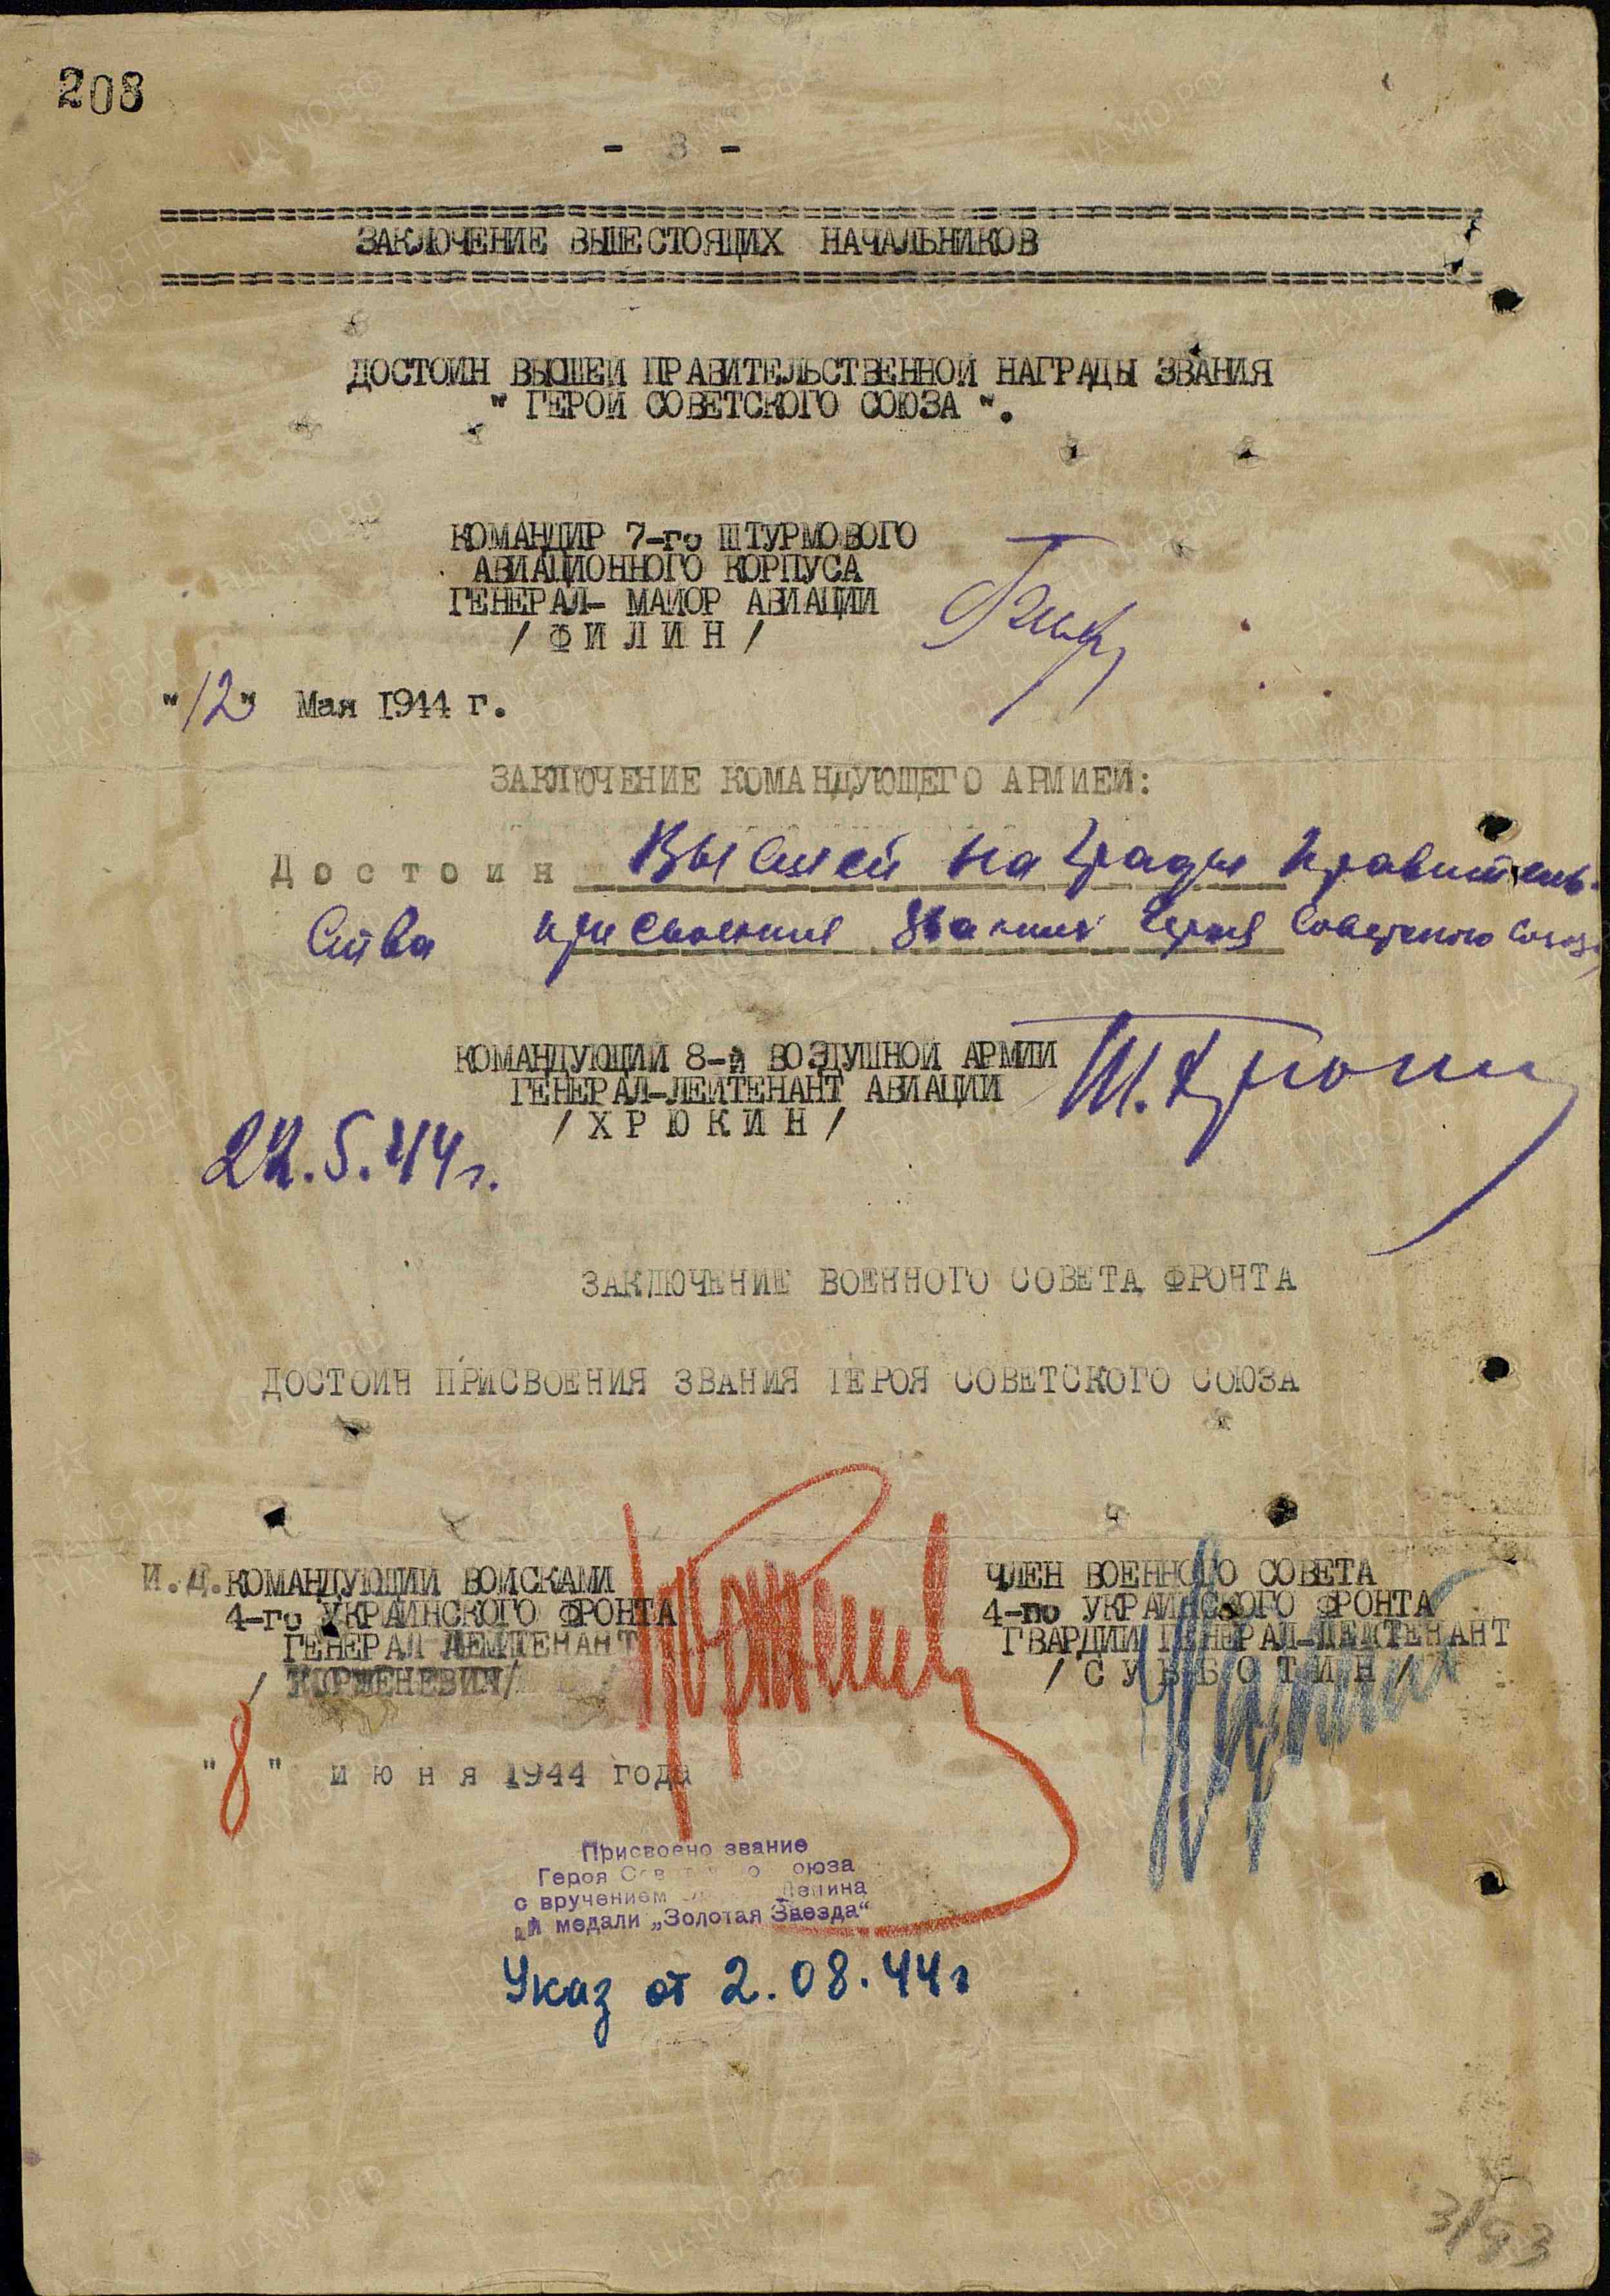 208
- 3 -
ЗАКЛЮЧЕНИЕ ВЫШЕСТОЯЩИХ НАЧАЛЬНИКОВ
ДОСТОИН ВЫСШЕЙ ПРАВИТЕЛЬСТВЕННОЙ НАГРАДЫ ЗВАНИЯ
" ГЕРОЙ СОВЕТСКОГО СОЮЗА ".
КОМАНДИР 7-го ШТУРМОВОГО
АВИАЦИОННОГО КОРПУСА
ГЕНЕРАЛ- МАЙОР АВИАЦИИ
/ Ф И Л И Н /
"12" Мая 1944 г.
ЗАКЛЮЧЕНИЕ КОМАНДУЮЩЕГО АРМИЕЙ:
Д о с т о и н Высшей награды Правитель-
ства присвоения звания Героя Советского Союза
КОМАНДУЮЩИЙ 8-й ВОЗДУШНОЙ АРМИИ
ГЕНЕРАЛ-ЛЕЙТЕНАНТ АВИАЦИИ
/ Х Р Ю К И Н /
Т. Хрюкин
22.5.44г.
ЗАКЛЮЧЕНИЕ ВОЕННОГО СОВЕТА ФРОНТА
ДОСТОИН ПРИСВОЕНИЯ ЗВАНИЯ ГЕРОЯ СОВЕТСКОГО СОЮЗА
И.Д. КОМАНДУЮЩИЙ ВОЙСКАМИ
4-го УКРАИНСКОГО ФРОНТА
ГЕНЕРАЛ ЛЕЙТЕНАНТ
/ КОРЖЕНЕВИЧ/
ЧЛЕН ВОЕННОГО СОВЕТА
4-го УКРАИНСКОГО ФРОНТА
ГВАРДИИ ГЕНЕРАЛ-ЛЕЙТЕНАНТ
/ С У Б Б О Т И Н /
"8" и ю н я 1944 года
Присвоено звание
Героя Советского Союза
с вручением Ленина
и медали „Золотая Звезда"
Указ от 2.08.44г
3/83